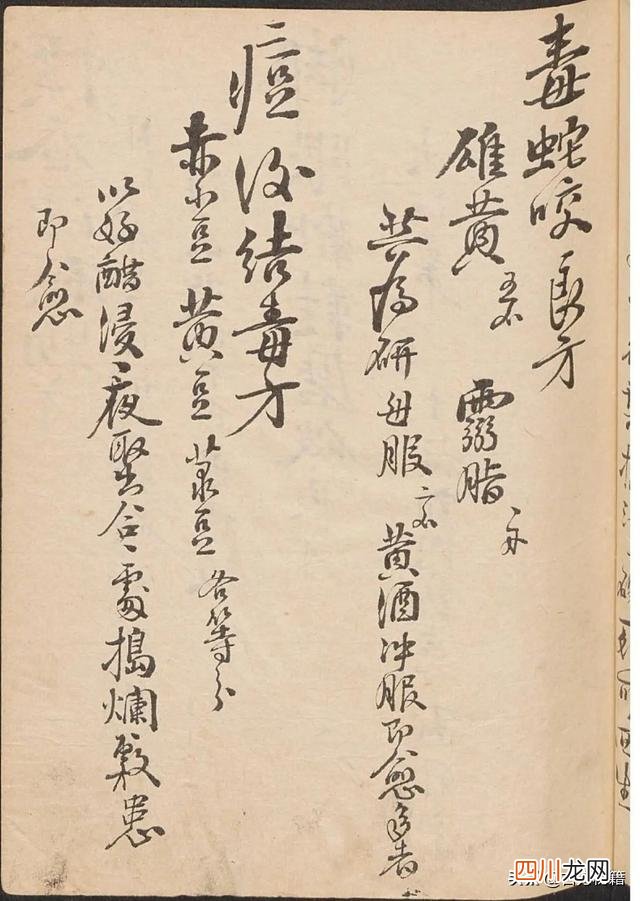 毒蛇咬良方
雄黄五钱 靈脂一両
共為研每服二钱黄酒冲服即愈
痘後结毒方
赤小豆黄豆菉豆各等分
以好醋浸一夜聚合一處搗爛敷患
即愈
四川龙网